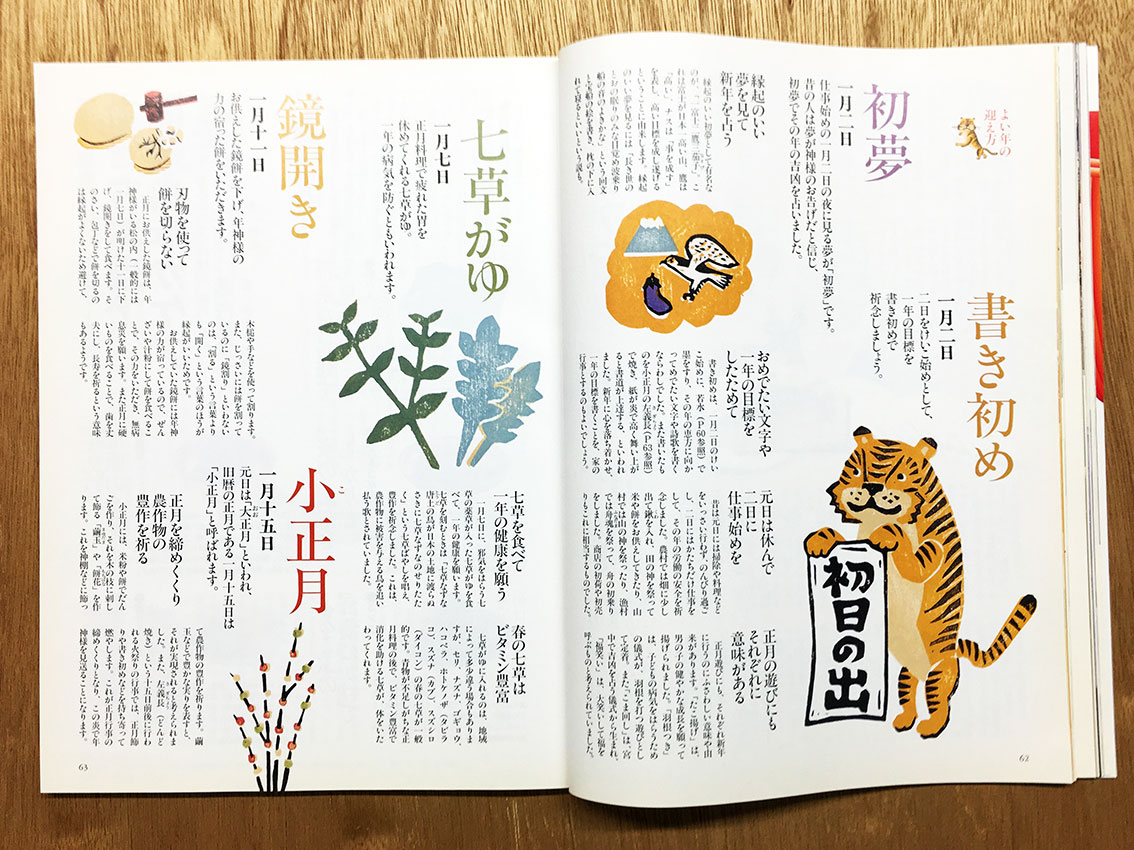 よい年の
迎え方
初夢
一月二日
仕事始めの一月二日の夜に見る夢が「初夢」です。
昔の人は夢が神様のお告げだと信じ、
初夢でその年の吉凶を占いました。
縁起のいい
夢を見て
新年を占う
縁起のいい初夢として有名な
のが、「一富士二鷹三茄子」。こ
れは富士が日本一高い山、鷹は
「高い」、ナスは「事を成す」
を表し、高い目標を成し遂げる
ということに由来します。縁起
のいい夢を見るには、「長き世の
とおの眠りのみな目覚め波乗り
船の音のよきかな」という回文
と宝船の絵を書き、枕の下に入
れて寝るといいという説も。
書き初め
一月二日
二日をけいこ始めとして、
一年の目標を
書き初めで
祈念しましょう。
おめでたい文字や
一年の目標を
したためて
書き初めは、一月二日のけい
こ始めに、若水(P60参照)で
墨をすり、その年の恵方に向か
ってめでたい文字や詩歌を書く
ならわしでした。また書いたも
のを小正月の左義長(P63参照)
で焼き、紙が炎で高く舞い上が
ると書道が上達する、といわれ
ました。新年に心を落ち着かせ、
一年の目標を書くことを、家の
行事とするのもよいでしょう。
元日は休んで
二日に
仕事始めを
昔は元日には掃除や料理など
をいっさい行わず、のんびり過ご
し、二日にはかたちだけ仕事を
して、その年の労働の安全を祈
念しました。農村では畑に少し
出て鍬を入れ、田の神を祭って
米や餅をお供えしてきたり、山
村では山の神を祭ったり、漁村
では舟魂を祭って、舟の初乗り
をしました。商店の初荷や初売
りもこれに相当するものでした。
正月の遊びにも
それぞれに
意味がある
正月遊びにも、それぞれ新年
に行うのにふさわしい意味や由
来があります。「たこ揚げ」は、
男の子の健やかな成長を願って
揚げられました。「羽根つき」
は、子どもの病気をはらうため
の儀式が、羽根を打つ遊びとし
て定着。また「こま回し」は、宮
中で吉凶を占う儀式から生まれ、
「福笑い」は、大笑いして福を
呼ぶものと考えられていました。
初日の出
62
七草がゆ
一月七日
正月料理で疲れた胃を
休めてくれる七草がゆ。
一年の病気を防ぐともいわれます。
七草を食べて
一年の健康を願う
一月七日に、邪気をはらう七
草の薬草が入った七草がゆを食
べて、一年の健康を願います。
七草を刻むときは「七草なずな
唐土の鳥が日本の土地に渡らぬ
さきに七草なずなのせりたた
く」という七草ばやしを唱え、
豊作を祈念しました。これは、
農作物に被害を与える鳥を追い
払う歌とされていました。
春の七草は
ビタミン豊富
七草がゆに入れるのは、地域
によって多少の違う場合もありま
すが、セリ、ナズナ、ゴギョウ、
ハコベラ、ホトケノザ(タビラ
コ)、スズナ(カブ)、スズシロ
(ダイコン)の春の七草が一般
的です。青物が不足しがちな正
月料理の後で、ビタミン豊富で
消化を助ける七草が、体をいた
わってくれます。
鏡開き
一月十一日
お供えした鏡餅を下げ、年神様の
力の宿った餅をいただきます。
刃物を使って
餅を切らない
正月にお供えした鏡餅は、年
神様がいる松の内(一般的には
一月七日)が明けた十一日に下
げ、鏡開きをして食べます。そ
のさい、包丁などで餅を切るの
は縁起がよくないため避けて、
木槌や手などを使って割ります。
また、じっさいには餅を割って
いるのに「鏡割り」といわない
のは、「割る」という言葉より
も「開く」という言葉のほうが
縁起がいいためです。
お供えしていた鏡餅には年神
様の力が宿っているので、ぜん
ざいや汁粉にして餅を食べるこ
とで、その力をいただき、無病
息災を願います。また正月に硬
いものを食べることで、歯を丈
夫にし、長寿を祈るという意味
もあるようです。
小正月
こ
一月十五日
元日は「大正月」といわれ、
おお
旧暦の正月である一月十五日は
「小正月」と呼ばれます。
正月を締めくくり
農作物の
豊作を祈る
小正月には、米粉や餅でだん
ごを作り、それを木の枝に刺し
て飾る「繭玉」や「餅花」を作
ります。これを神棚などに飾っ
て農作物の豊作を祈ります。繭
玉などで豊かな実りを表すと、
それが実現されると考えられま
した。また、左義長(どんど
焼き)という十五日前後に行わ
れる火祭りの行事では、正月飾
りや書き初めなどを持ち寄って
燃やします。これが正月行事の
締めくくりとなり、この炎で年
神様を見送ることになります。
63